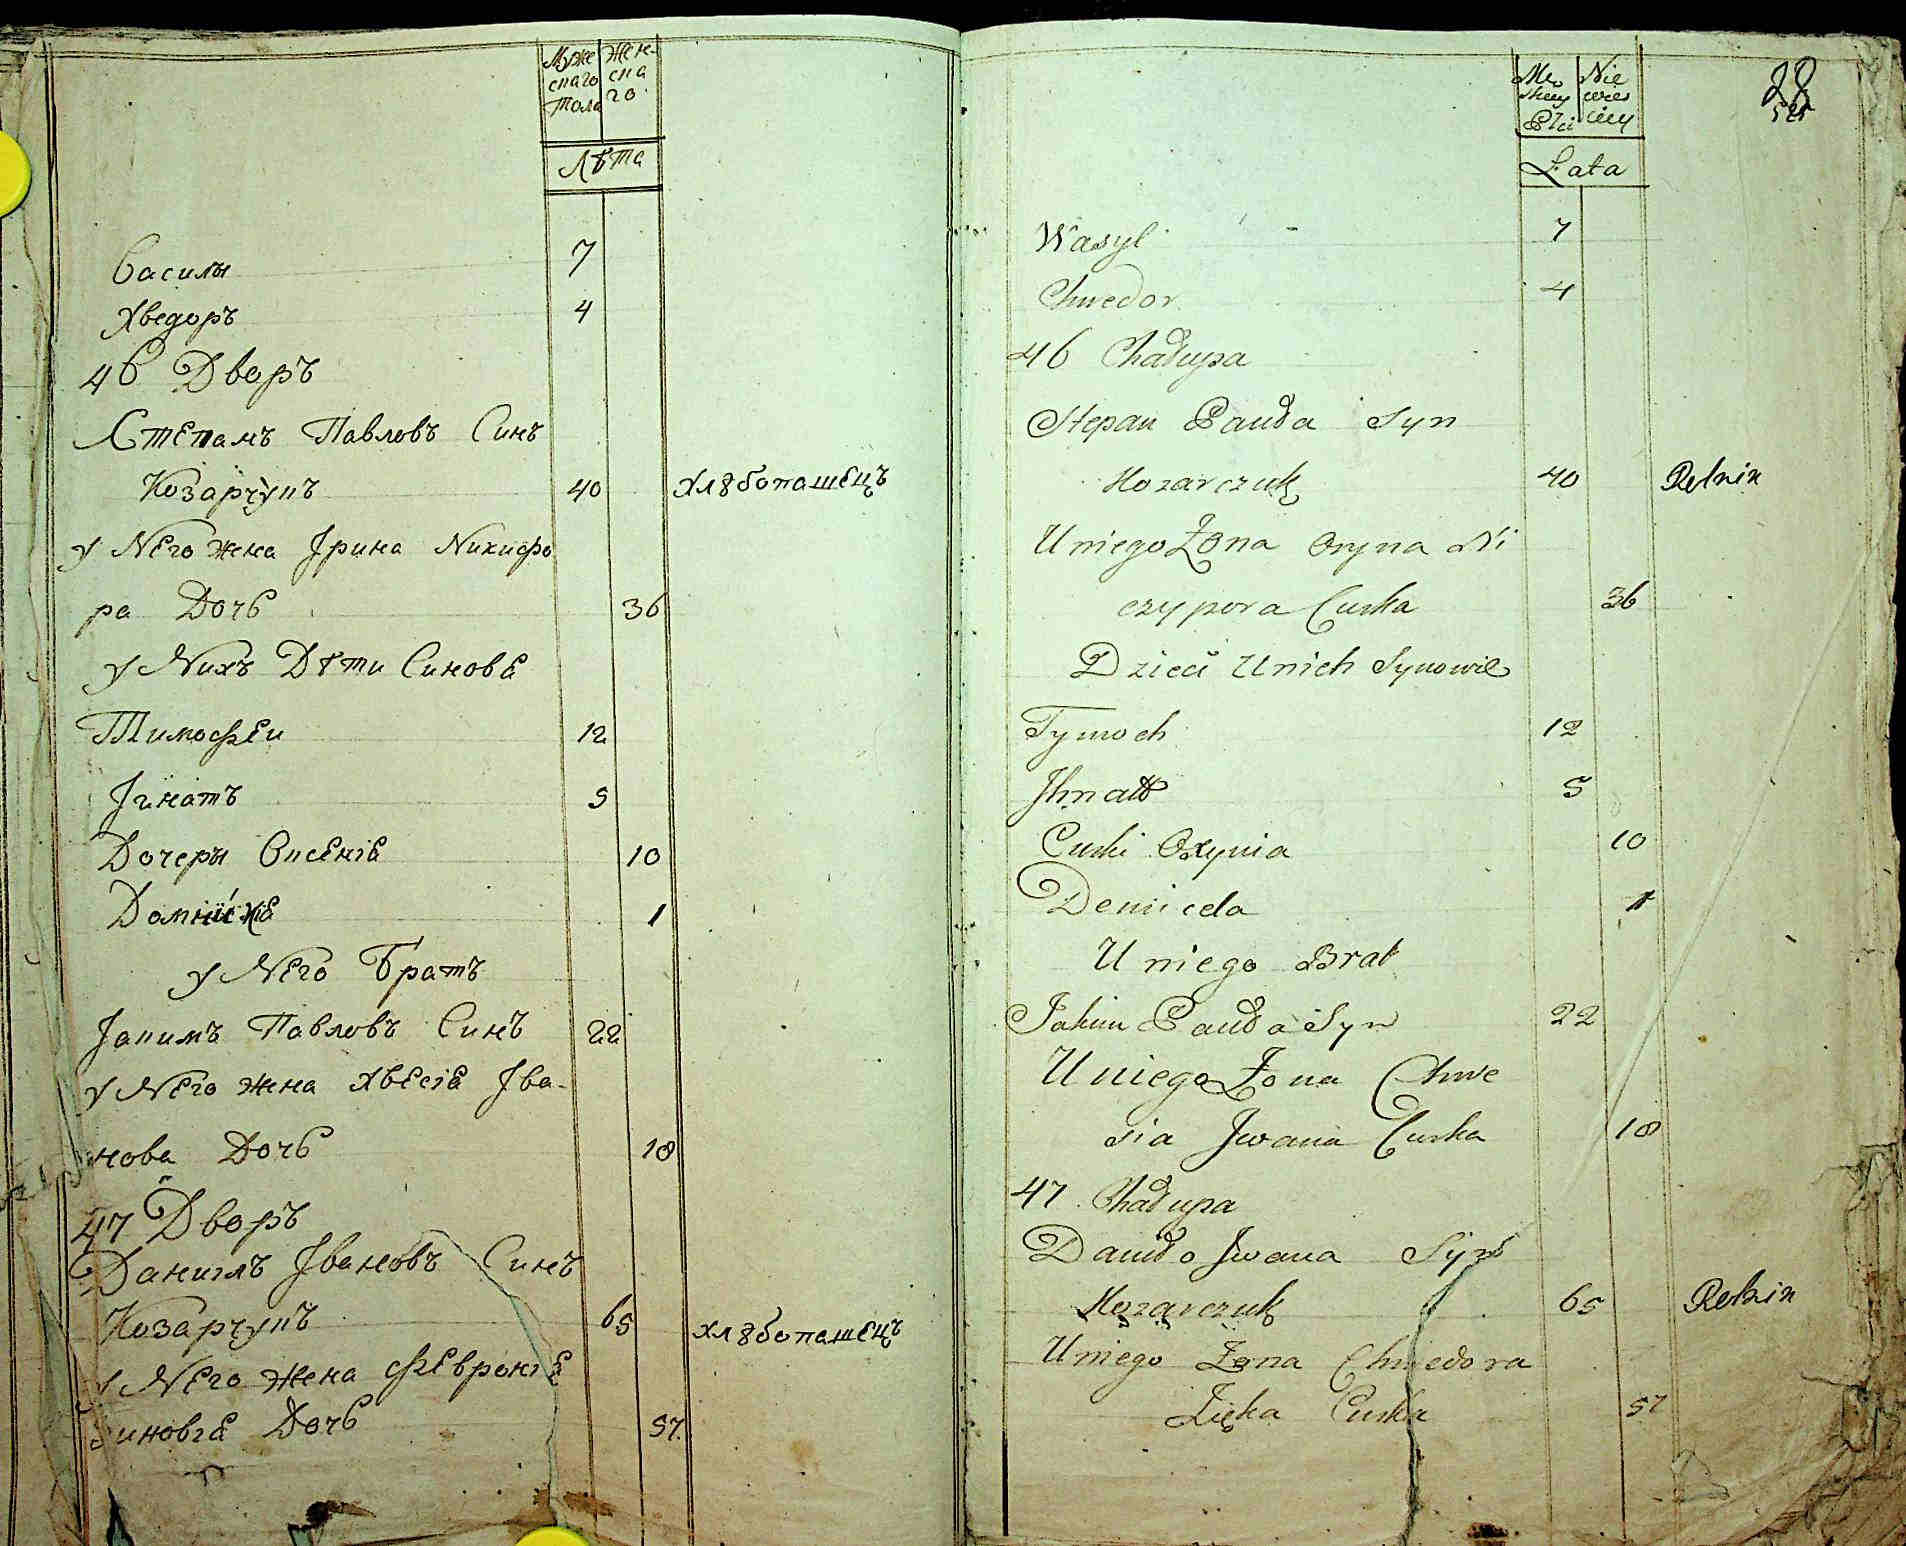 Муже
скаго
пола
Жен
ска
го
Лѣта
Василы 7
Хведоръ 4
46 Дворъ
Степанъ Павловъ Синъ
Козарчукъ 40 хлѣбопашецъ
у Него жена Ірина Никифо
ра Дочь 36
у Нихъ Дѣти Синове
Тимофеи 12
Ігнатъ 5
Дочеры Оксеніе
10
1
у Него Братъ
Іакимъ Павловъ Синъ 22
у Него жена Хвесіе Іва-
нова Дочь 18
47 Дворъ
Данилъ Івановъ Синъ
Козарчукъ 65 хлѣбопашецъ
у Него жена Февроніе
Зиновіе Дочь 57.
28
Mę
skiey
Płci
Nie
wies
ciey
Łata
Wasyl 7
Chwedor 4
46 Chałupa
Stepan Pawła Syn
Kozarczuk 40 Rolnik
Uniego Żona Oryna Ni
czypora Curka 36
Dzieci Unich Synowie
Tymoch 12
Jhnatt 5
Curki Oxynia 10
Demicela 1
Uniego Brat
Jakim Pawła Syn 22
Uniego Żona Chwe
sia Jwana Curka 18
47 Chałupa
Daniło Jwana Syn
Kozarczuk 65 Rolnik
Uniego Żona Chwedora
Zięka Curka 57